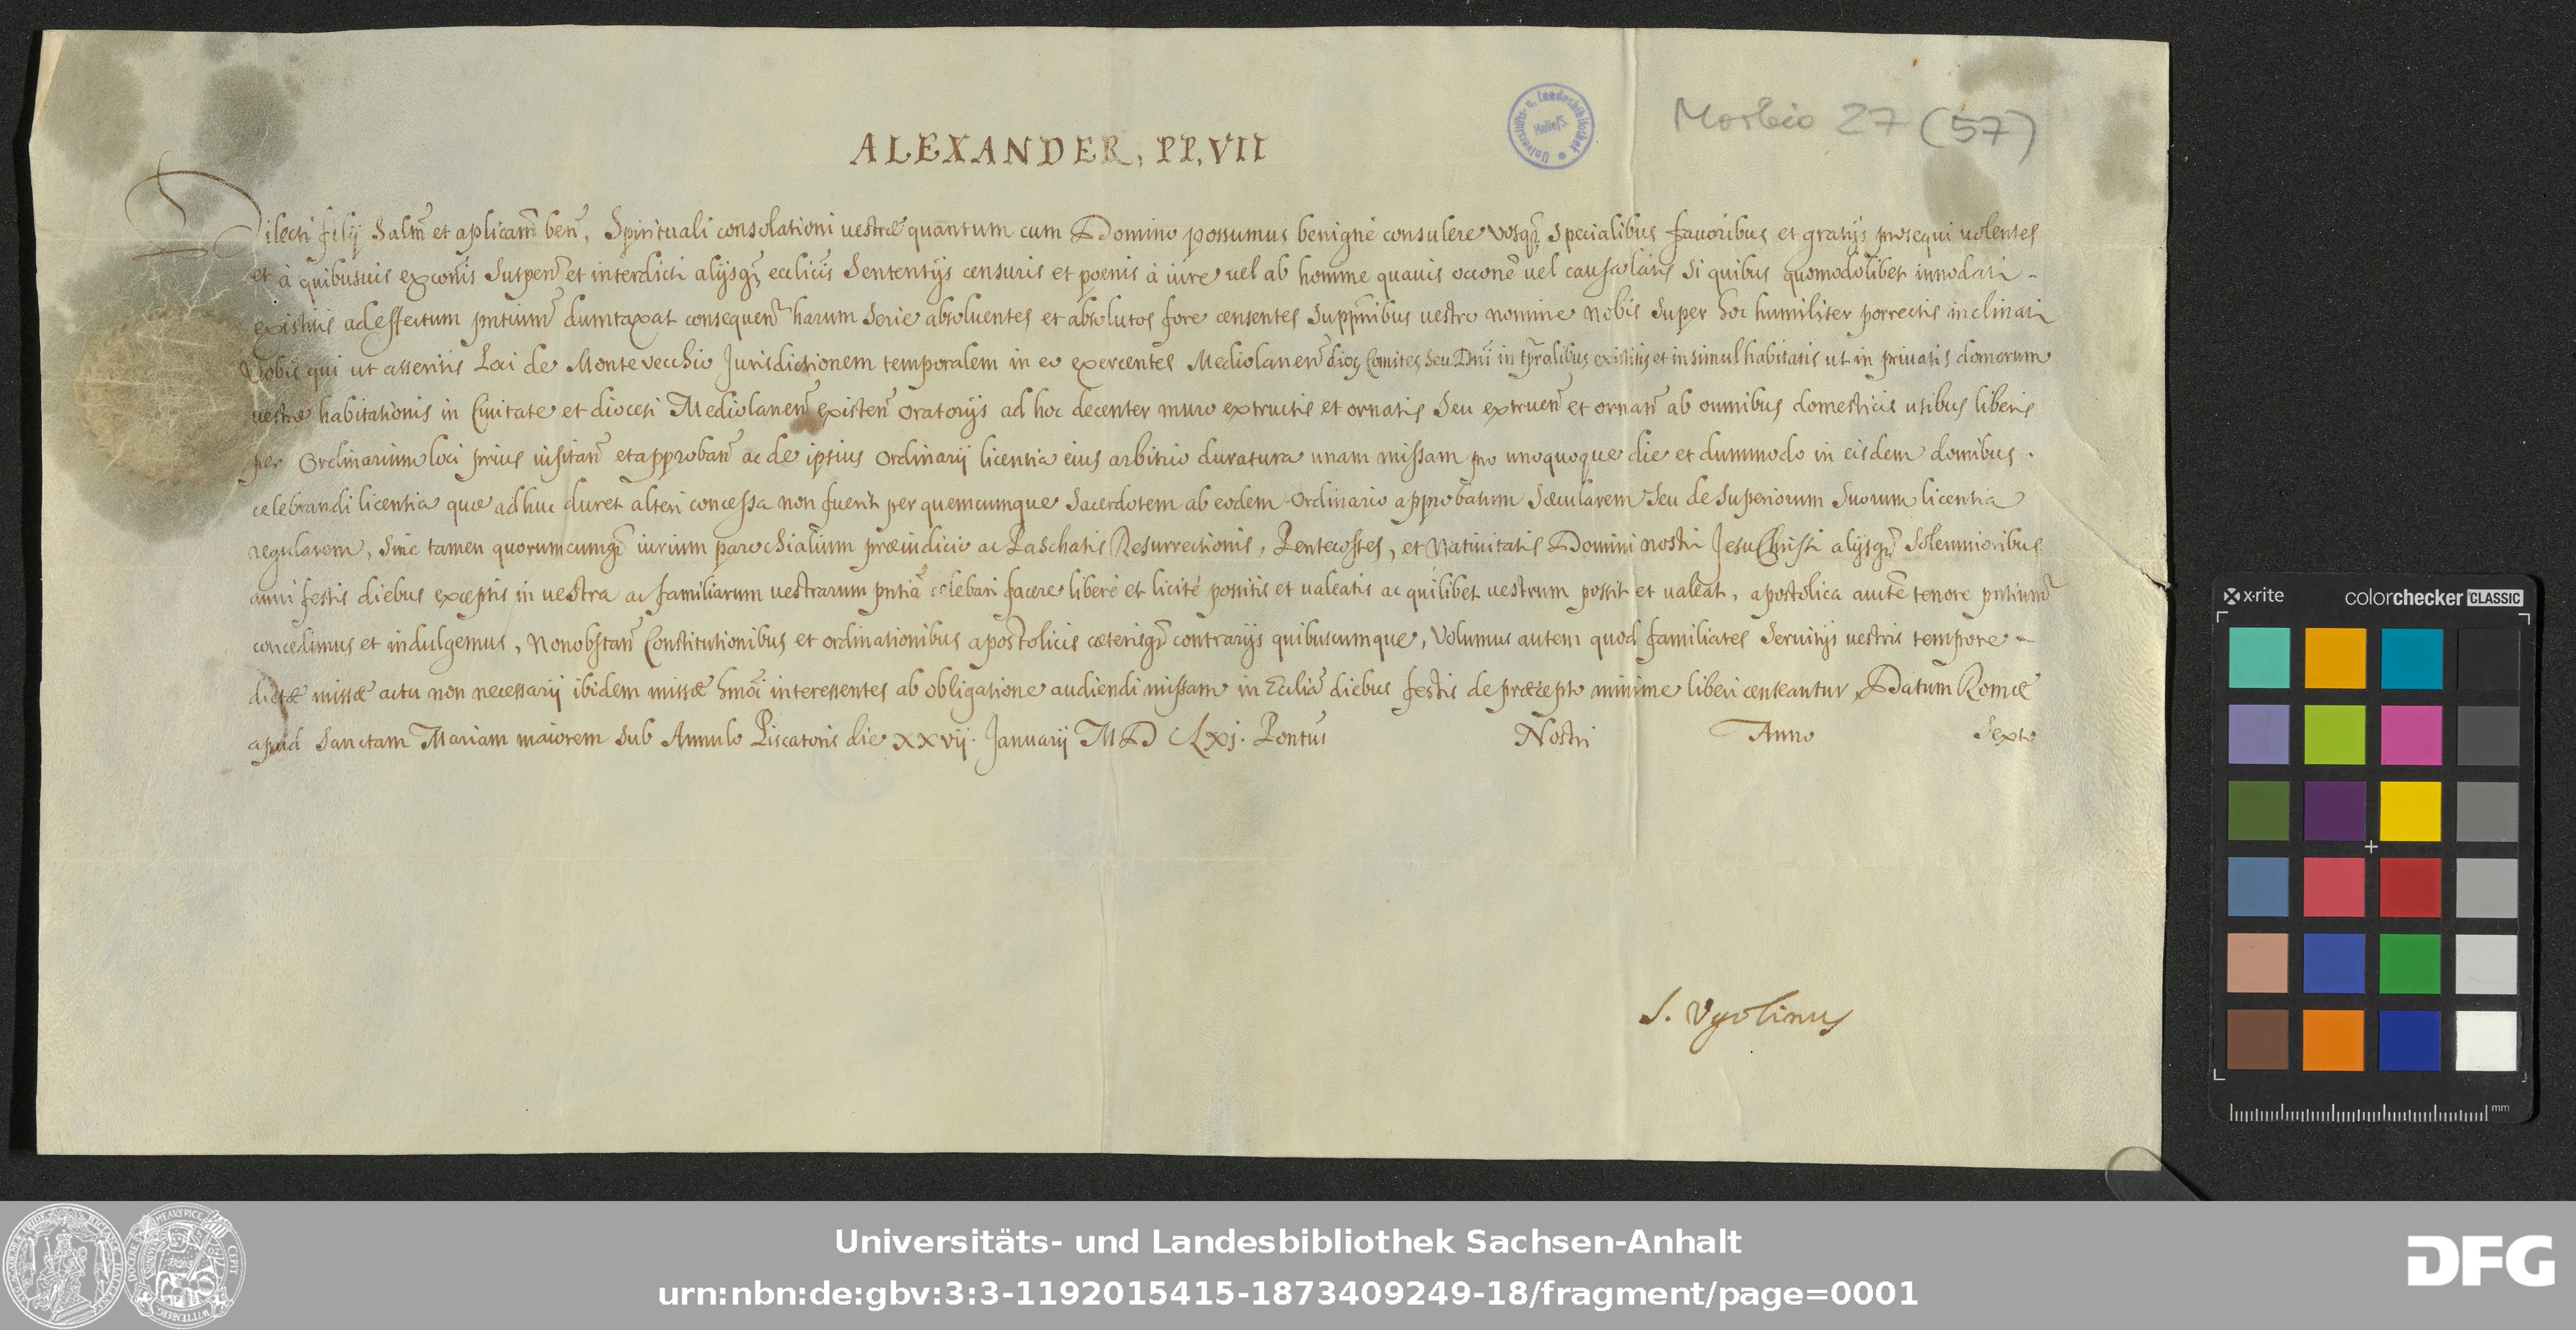 Morbio 27 (57)
Universitäts- u. Landesbibliothek Halle/S.
ALEXANDER, PP, VII
Dilecti filij Saltm̃ et aplicam̃ ben̄, Spirituali consolationi uestræ quantum cum Domino possumus benigné consulere vosq3 Specialibus fauoribus et gratijs prosequi uolentes
et à quibusuis excõnis Suspen̄ et interdicti alijsq3 ecclicis Sententijs censuris et poenis à iure uel ab homine quauis occonẽ uel causa latis Si quibus quomodolibet innodati -
existitis ad effectum pñtium dumtaxat consequen̄ harum Serie absoluentes et absolutos fore censentes Suppñibus uestro nomine nobis Super hoc humiliter porrectis inclinati
Vobis qui ut asseritis Loci de Montevecchio Jurisdictionem temporalem in eo exercentes Mediolanen̄ dioç Comites Seu Dñi in tp̃ralibus existitis et insimul habitatis ut in priuatis domorum
uestræ habitationis in Ciuitate et diocesi Mediolanen̄ existen̄ oratorijs ad hoc decenter muro extructis et ornatis Seu extruen̄ et ornan̄ ab omnibus domesticis usibus liberis
per Ordinarium loci prius uisitan̄ et approban̄ ac de ipsius Ordinarij licentia eius arbitrio duratura unam missam pro unoquoque die et dummodo in eisdem domibus.
celebrandi licentia quæ adhuc duret alteri concessa non fuerit per quemcumque Sacerdotem ab eodem Ordinario approbatum Sæcularem Seu de Superiorum Suorum licentia
regularem, Sine tamen quorumcumq3 iurium parochialium præiudicio ac Paschatis Resurrectionis, Pentecostes, et Natiuitatis Domini nostri Jesu Christi alijsq3 Solemnioribus
anni festis diebus exceptis in uestra ac familiarum uestrarum pñtia celebari facere liberé et licité possitis et ualeatis ac quilibet uestrum possit et ualeat, apostolica auctẽ tenore pñtium
concedimus et indulgemus, Nonobstan̄ Constitutionibus et ordinationibus apostolicis cæterisq3 contrarijs quibuscumque, Volumus autem quod familiares Seruitijs uestris tempore -
dictæ missæ actu non necessarij ibidem missæ hmõi interessentes ab obligatione audiendi missam in Ecclia diebus festis de præcepto minime liberi censeantur, Datum Romæ
apud Sanctam Mariam maiorem Sub Annulo Piscatoris die XXVij. Januarij M D CLXj. Pontus Nostri Anno Sexto
S. Vgolinus
x-rite colorchecker CLASSIC
mm
Universitäts- und Landesbibliothek Sachsen-Anhalt
urn:nbn:de:gbv:3:3-1192015415-1873409249-18/fragment/page=0001
DFG